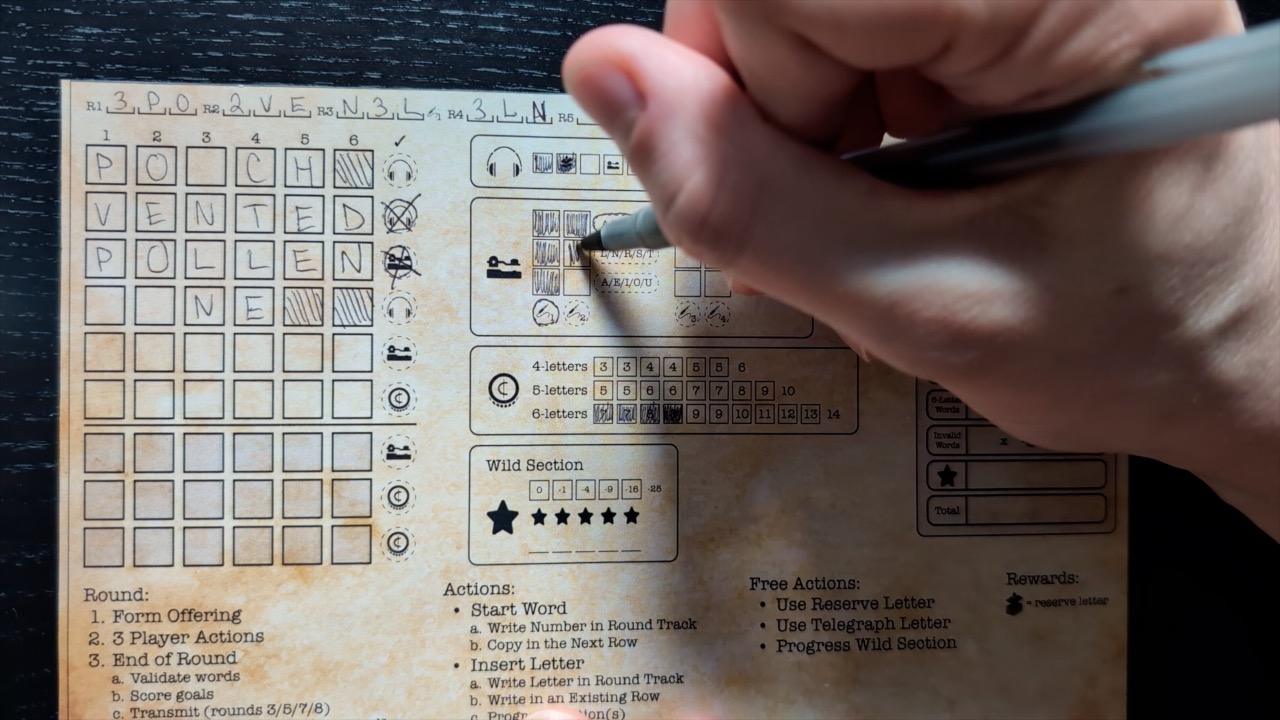 R1 3 P O R2 2 V E R3 N 3 L R4 3 L N R5
1 2 3 4 5 6 ✓
P O C H
V E N T E D
P O L L E N
N E
L/N/R/S/T
A/E/I/O/U
1 2 3 4
4-letters 3 3 4 4 5 5 6
5-letters 5 5 6 6 7 7 8 9 10
6-letters 9 9 10 11 12 13 14
Wild Section
0 -1 -4 -9 -16 -25
6-Letter
Words
Invalid
Words x
Total
Round:
1. Form Offering
2. 3 Player Actions
3. End of Round
a. Validate words
b. Score goals
c. Transmit (rounds 3/5/7/8)
Actions:
• Start Word
a. Write Number in Round Track
b. Copy in the Next Row
• Insert Letter
a. Write Letter in Round Track
b. Write in an Existing Row
Free Actions:
• Use Reserve Letter
• Use Telegraph Letter
• Progress Wild Section
Rewards:
= reserve letter